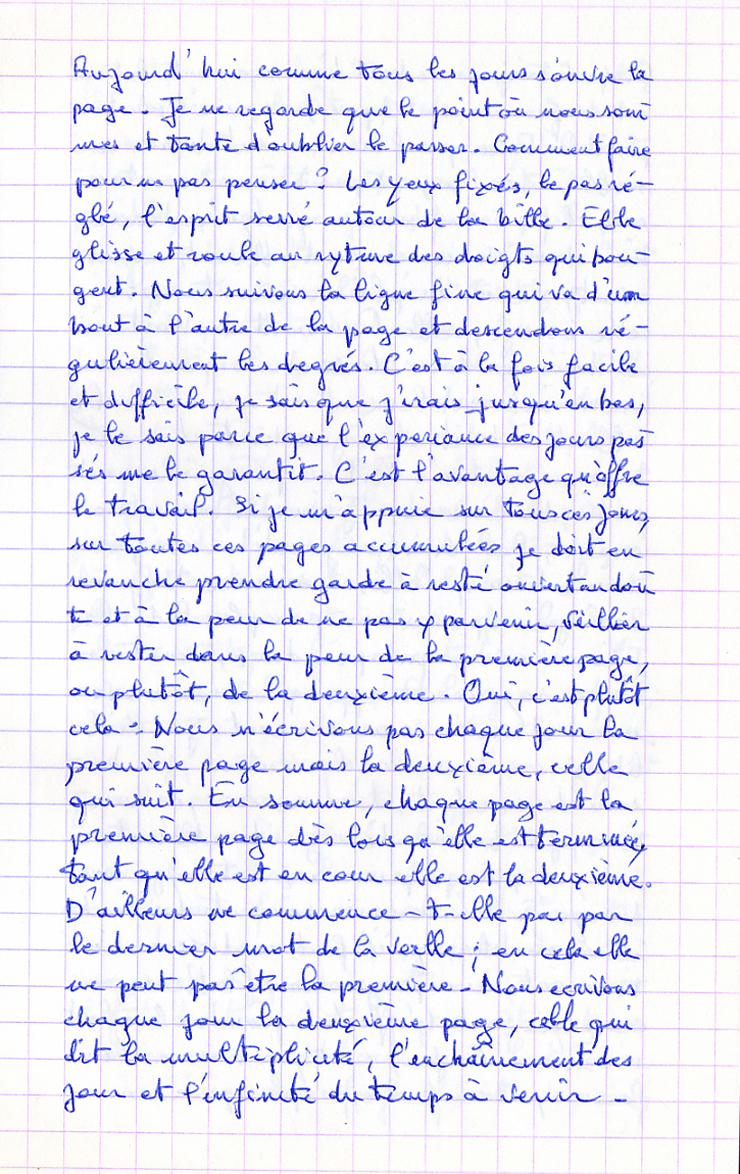 Aujourd'hui comme tous les jours s'ouvre la
page. Je ne regarde que le point où nous som
mes et tante d'oublier le passer. Comment faire
pour ne pas penser ? Les yeux fixés, le pas ré-
glé, l'esprit serré autour de la bille. Elle
glisse et roule au rytme des doigts qui bou-
gent. Nous suivons la ligne fine qui va d'um
bout à l'autre de la page et descendons ré-
gulièrement les degrés. C'est à la fois facile
et difficile, je sais que j'irais jusqu'en bas,
je le sais parce que l'experiance des jours pas
sés me le garantit. C'est l'avantage qu'offre
le travail. Si je m'appuie sur tous ces jours,
sur toutes ces pages accumulées je doit en
revanche prendre garde à resté ouvert au dou
te et à la peur de ne pas y parvenir, veiller
à rester dans la peur de la première page,
ou plutôt, de la deuxième. Oui, c'est plutôt
cela : Nous n'écrivons pas chaque jour la
première page mais la deuxième, celle
qui suit. En somme, chaque page est la
première page dès lors qu'elle est terminée,
tant qu'elle est en cour elle est la deuxième.
D'ailleurs ne commence-t-elle pas par
le dernier mot de la veille ; en cela elle
ne peut pas être la première. Nous ecrivons
chaque jour la deuxième page, celle qui
dit la multiplicité, l'enchaînement des
jour et l'infinité du temps à venir.